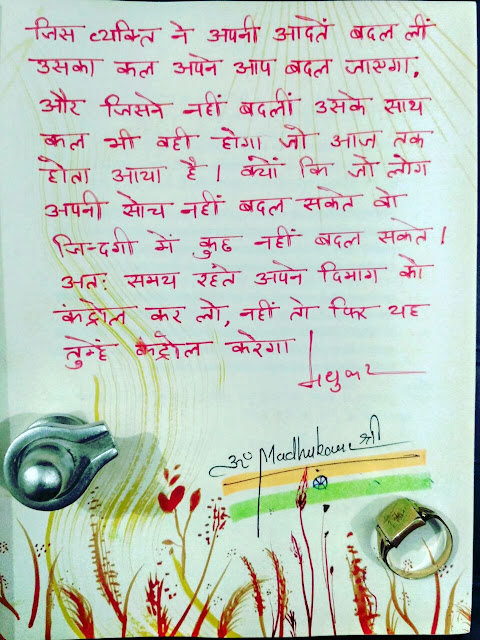 जिस व्यक्ति ने अपनी आदतें बदल लीं
उसका कल अपने आप बदल जाएगा,
और जिसने नहीं बदलीं उसके साथ
कल भी वही होगा जो आज तक
होता आया है। क्यों कि जो लोग
अपनी सोच नहीं बदल सकते वो
जिन्दगी में कुछ नहीं बदल सकते!
अतः समय रहते अपने दिमाग को
कंट्रोल कर लो, नहीं तो फिर यह
तुम्हें कंट्रोल करेगा।
मधुकर
ॐ Madhukar श्री